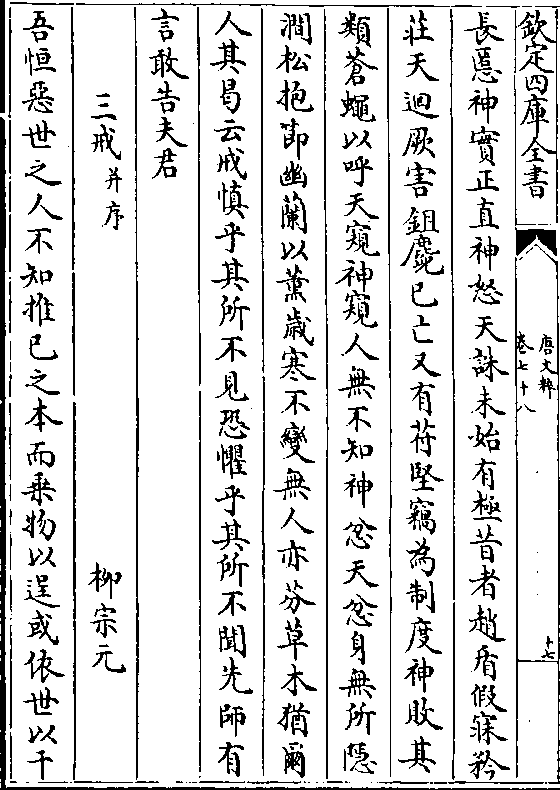 欽定四庫全書
唐文粹
卷七十八
十七
長慝神實正直神怒天誅未始有極昔者趙盾假寐矜
莊天迴厥害鉏麑已亡又有苻堅竊為制度神敗其
類蒼蠅以呼天窺神窺人無不知神忿天忿身無所隱
澗松抱節幽蘭以薰歲寒不變無人亦芬草木猶爾
人其曷云戒慎乎其所不見恐懼乎其所不聞先師有
言敢告夫君
三戒并序
柳宗元
吾恒惡世之人不知推已之本而乗物以逞或依世以干